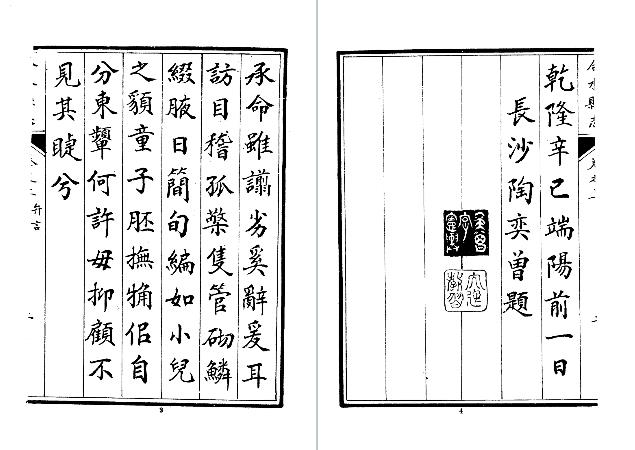 承命雖譾劣奚辭爰耳
訪目稽孤槧隻管砌鱗
綴腋日簡句編如小兒
之貌童子胚撫侶自
分東顰何許毋抑顧不
見其睫兮
弁言
3
合水縣志
乾隆辛巳端陽前一日
長沙陶奕曾題
4